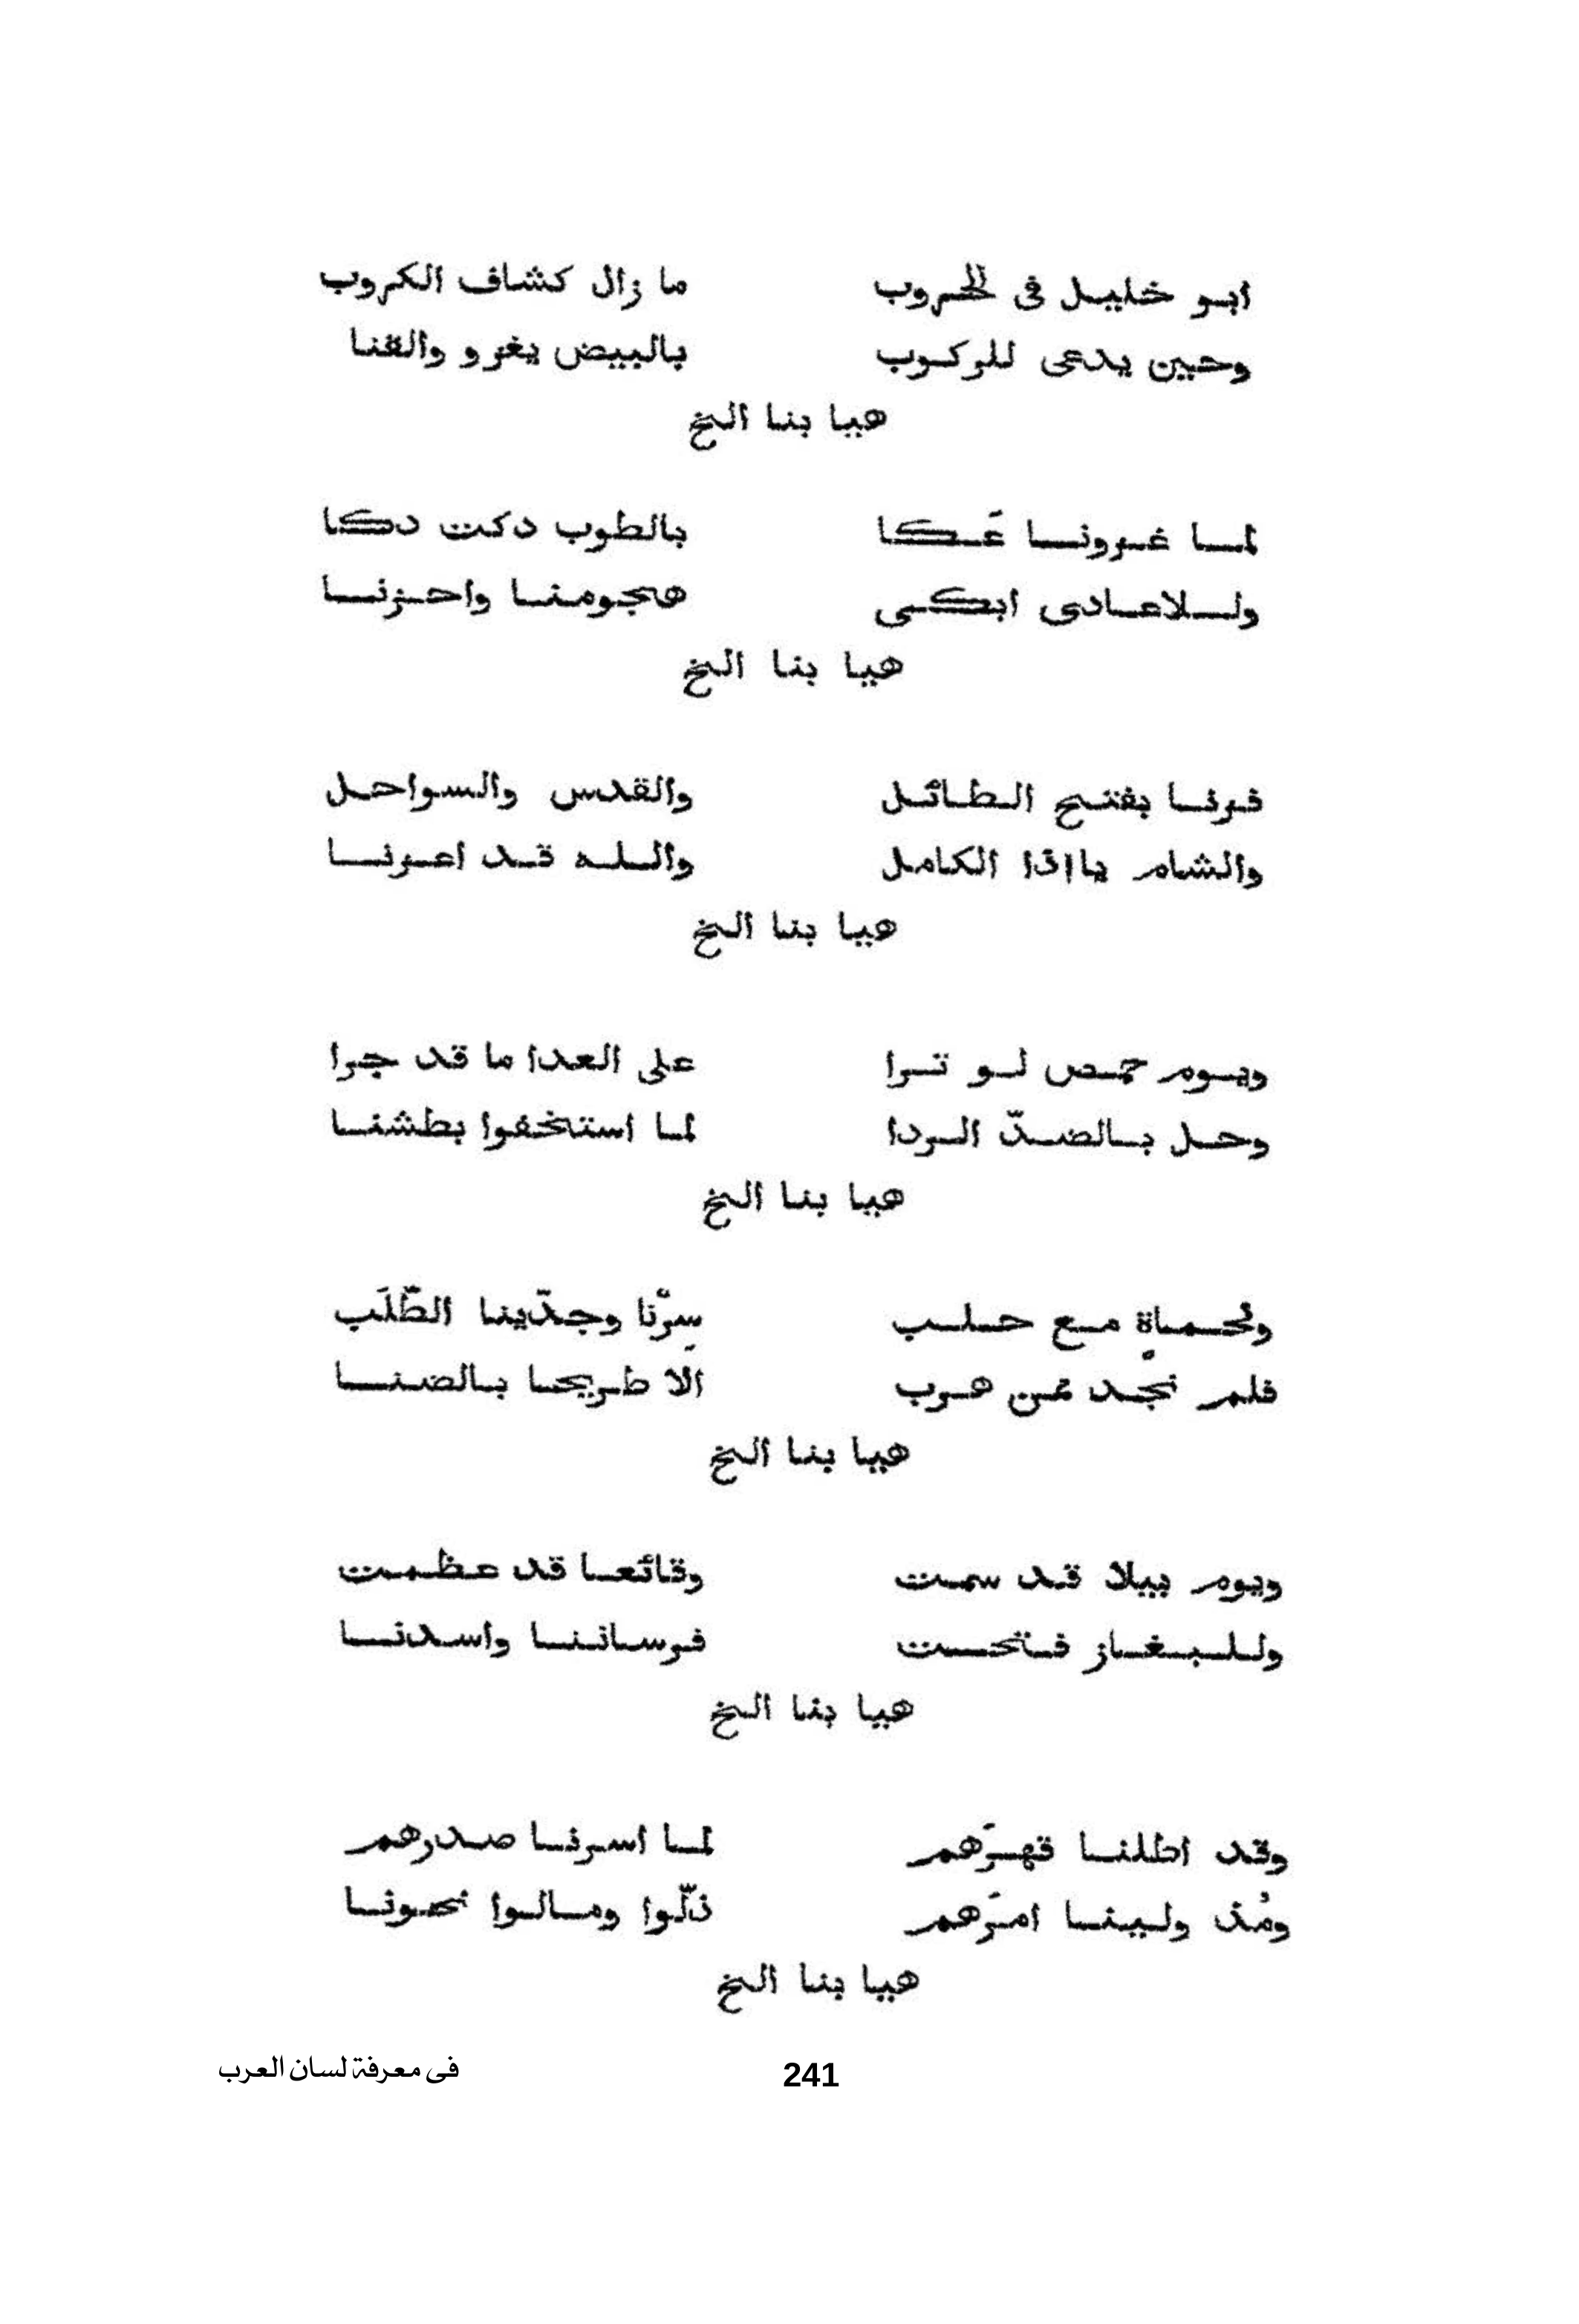 ابو خليل فى الحروب ما زال كشاف الكروب
وحين يدعى للركوب بالبيض يغزو والقنا
هيا بنا الخ
لما غزونا عَكا بالطوب دكت دكا
وللاعادى ابكى هجومنا واحزننا
هيا بنا الخ
فزنا بفتح الطائل والقدس والسواحل
والشام ياذا الكامل والله قد اعزنا
هيا بنا الخ
ويوم حمص لو ترا على العدا ما قد جرا
وحل بالضدّ الردا لما استخفوا بطشنا
هيا بنا الخ
ولحماة مع حلب سِرْنا وجدّينا الطّلَب
فلم نجد ممن هرب الا طريحا بالضنا
هيا بنا الخ
ويوم بيلا قد سمت وقائعا قد عظمت
وللبغاز فتحت فرساننا واسدنا
هيا بنا الخ
وقد اطلنا قهرَهم لما اسرنا صدرهم
ومُذ ولينا امرَهم ذلّوا ومالوا نحونا
هيا بنا الخ
فى معرفة لسان العرب 241